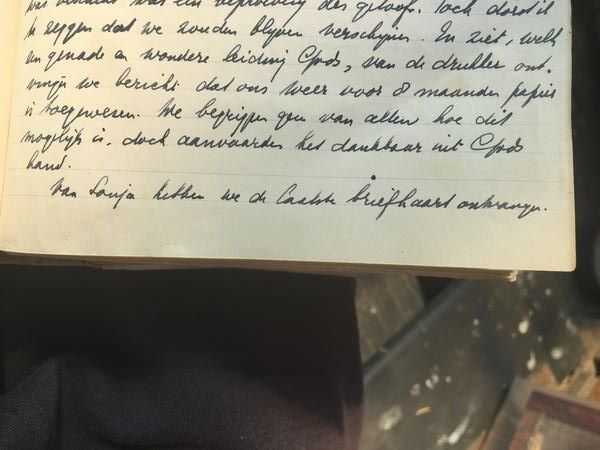 was een beproeving des geloofs. Toch dorst ik
te zeggen dat we zouden blijven verschijnen. En ziet, welk
een genade en wondere leiding Gods, van de drukker ont-
vingen we bericht dat ons weer voor 8 maanden papier
is toegewezen. We begrijpen geen van allen hoe dit
mogelijk is, doch aanvaarden het dankbaar uit Gods
hand.
Van Sonja hebben we de laatste briefkaart ontvangen.